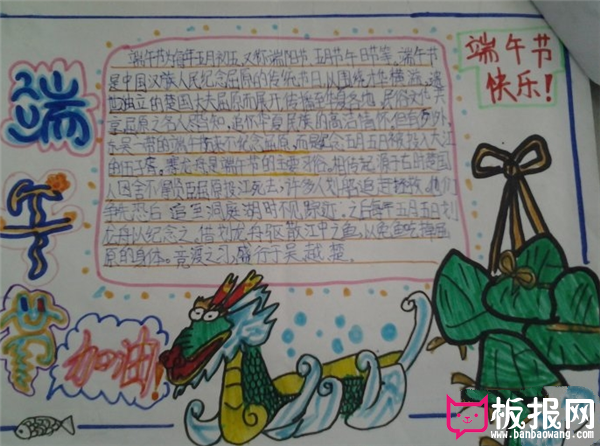 端午节
端午节快乐！
端午节为每年五月初五，又称端阳节、五月节、午日节等。端午节
是中国汉族人民纪念屈原的传统节日，以围绕才华横溢、遗
世独立的楚国大夫屈原而展开，传播至华夏各地，民俗文化共
享，屈原之名人尽皆知，追怀华夏民族的高洁情怀。但有例外，
东吴一带的端午节 不纪念屈原，而是纪念五月五日被投入大江
的伍子胥。赛龙舟是端午节的主要习俗。相传起源于古时楚国
人因舍不得 臣屈原投江死去，许多人划船追赶拯救。他们
争先恐后，追至洞庭湖时不见踪迹。之后每年五月五日划
龙舟以纪念之。借划龙舟驱散江中之鱼，以免鱼吃掉屈
原的身体。竞渡之习，盛行于吴、越、楚。
加油！
板报网
www.banbaowang.com